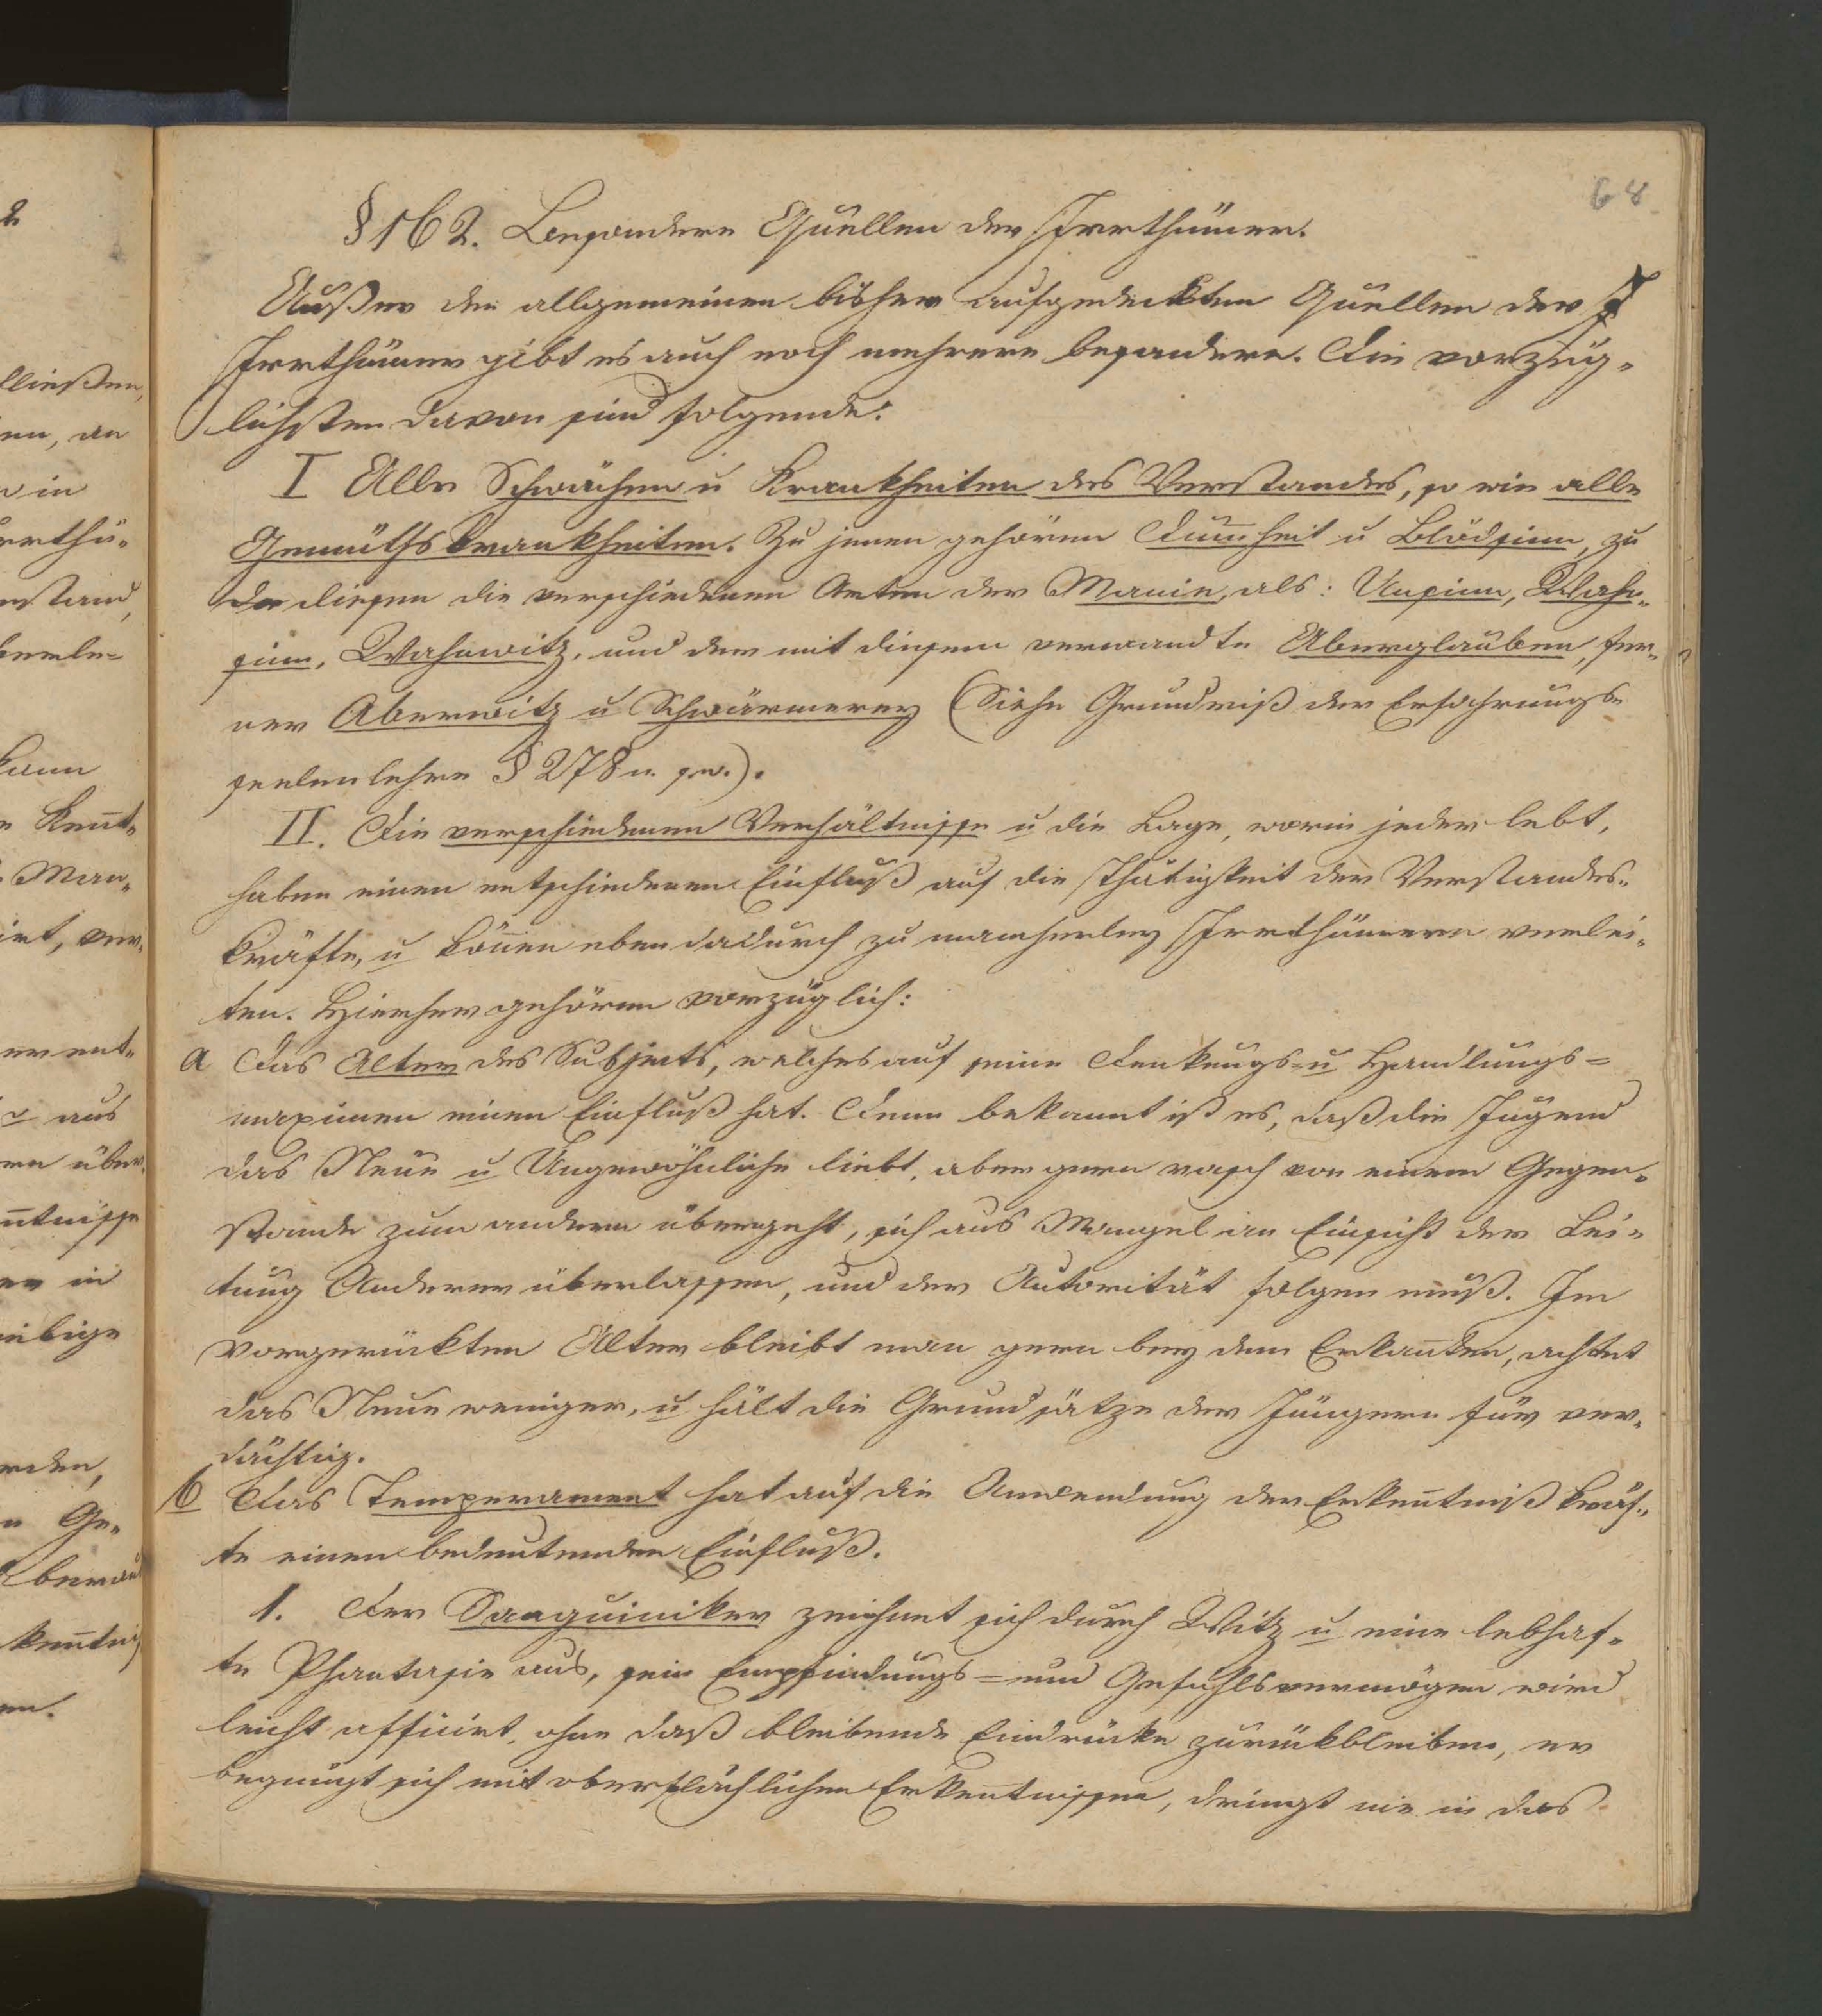 2
ließen,
en, an
n in
rrthü-
nstand,
berle-
kann
Kent-
Man-
irt, ver-
er ent-
aus
en über-
ntnisse
er in
eibige
rden,
Ge-
kentniß
en.
68
§ 162. Besondere Quellen der Irrthümer.
Außer den allgemeinen bisher aufgedeckten Quellen der I
Irrthümer gibt es auch noch mehrere besondere. Die vorzüg-
lichsten davon sind folgende:
I Alle Schwächen u Krankheiten des Verstandes, so wie alle
Gemüthskrankheiten. Zu jenen gehören Dum̅heit u Blödsinn, zu
diesen die verschiedenen Arten der Manie, als: Unsinn, Wahn-
sinn, Wahnwitz, und der mit diesem verwandte Aberglauben, fer-
ner Aberwitz u Schwärmerey (Siehe Grundriß der Erfahrungs-
seelenlehre § 278 u. sw.).
II. Die verschiedenen Verhältnisse u die Lage, worin jeder lebt,
haben einen entschiedenen Einfluß auf die Thätigkeit der Verstandes-
kräfte, u kön̅en eben dadurch zu mancherley Irrthümern verlei-
ten. Hierher gehören vorzüglich:
a Das Alter des Subjects, welches auf seine Denkungs- u Handlungs-
maximen einen Einfluß hat. Denn bekannt ist es, daß die Jugend
das Neue u Ungewöhnliche liebt, aber gern rasch von einem Gegen-
stande zum andern übergeht, sich aus Mangel an Einsicht der Lei-
tung Anderer überlassen, und der Autorität folgen muß. Im
vorgerückten Alter bleibt man gern bey dem Erkan̅ten, achtet
das Neue weniger, u hält die Grundsätze der Jüngern für ver-
dächtig.
b Das Temperament hat auf die Anwendung der Erken̅tniß kräf-
te einen bedeutenden Einfluß.
1. Der Sanguiniker zeichnet sich durch Witz u eine lebhaf-
te Phantasie aus, sein Empfindungs- und Gefühlsvermögen wird
leicht afficirt, ohne daß bleibende Eindrücke zurückbleiben, er
begnügt sich mit oberflächlichen Erken̅tnissen, dringt nie in das